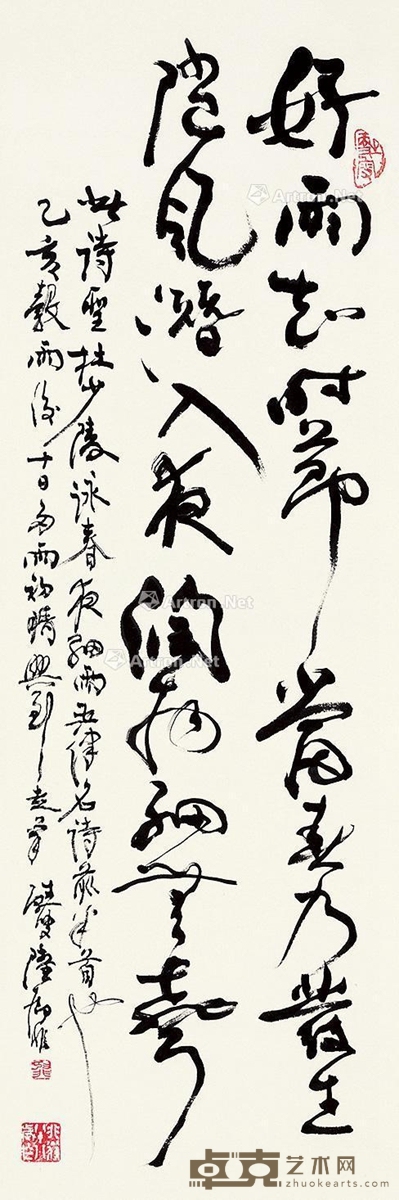 好雨知时节当春乃发生
随风潜入夜润物细无声
此诗圣杜少陵咏春夜细雨五律名诗前半首也
乙亥谷雨后十日多雨初晴兴到走笔 陆俨
Artron.Net
卓克艺术网
zhuokearts.com